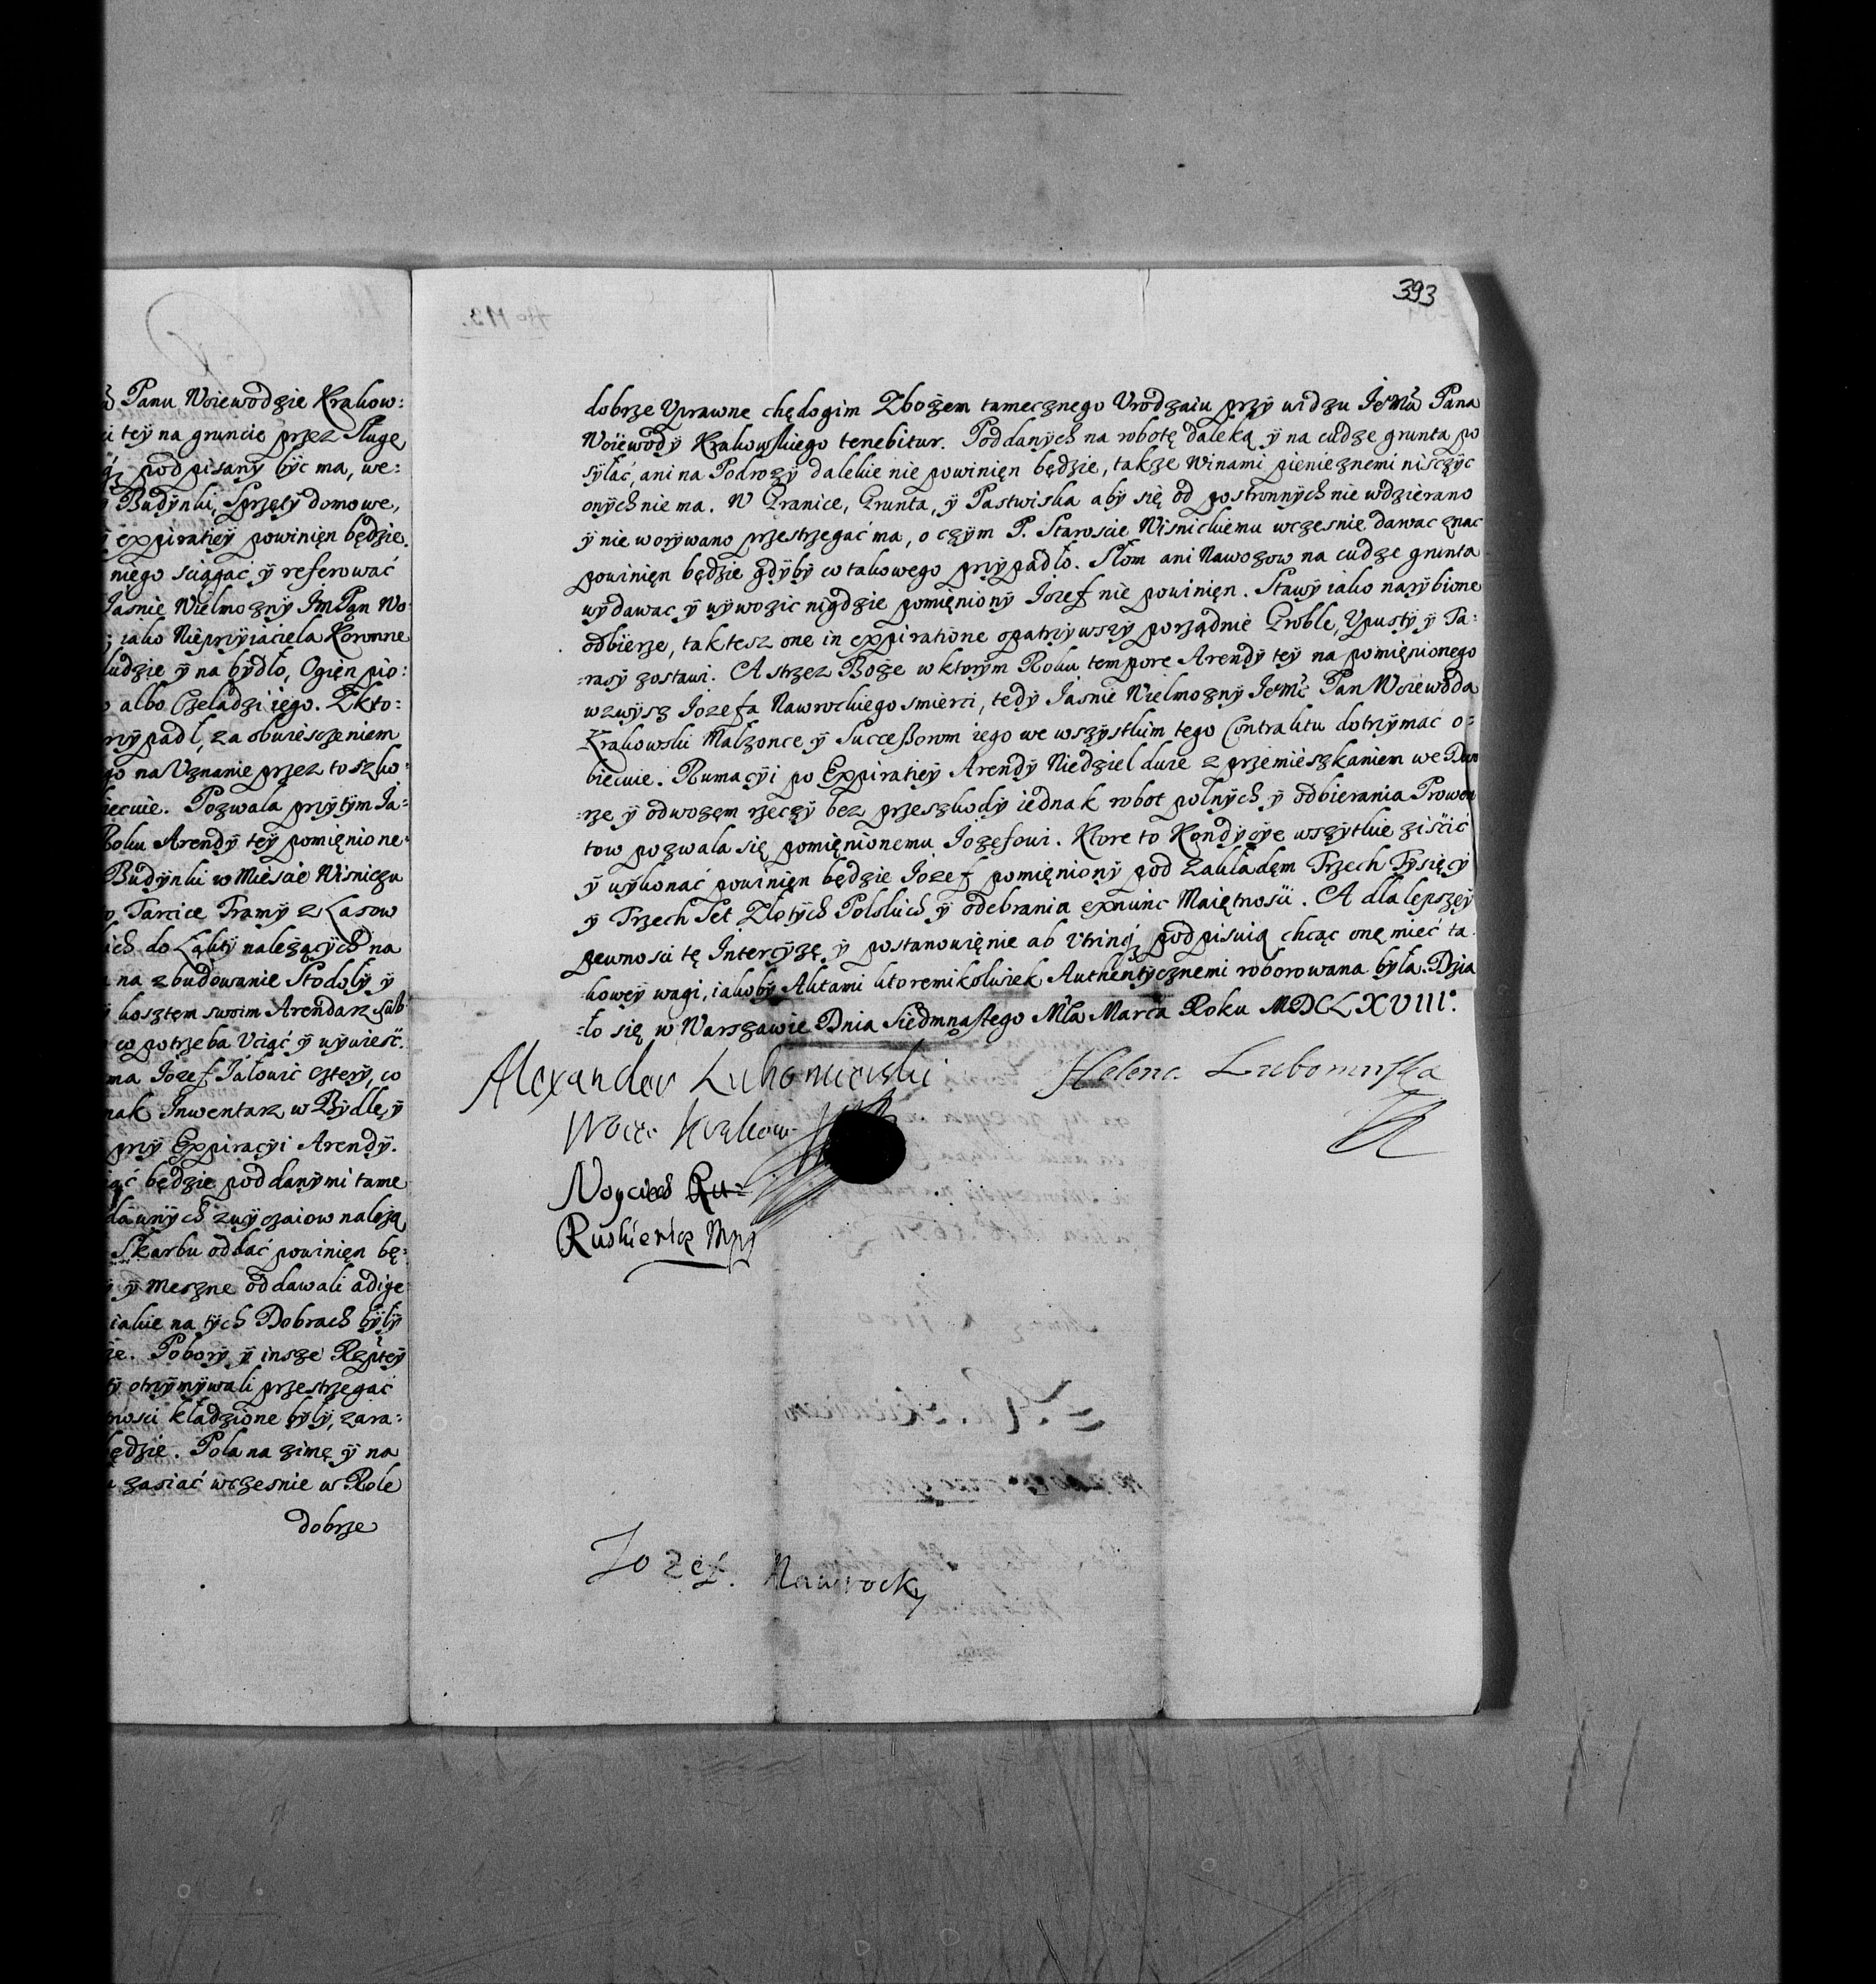 ẃ Panu Woiewodzie Krakow:
teÿ na gruncie przez Sługę
podpisany być ma, we:
Budÿnki, Sprzęty domowe,
expiratieÿ powinięn będzie.
niego sciągać ÿ referować
Jasnie Wielmozny Jm Pan Wo
iako Nieprÿiaciela Koronne
ludzie ÿ na bÿdło, Ogięn pio:
albo Czeladzi iego. Z kto:
padł, za obwiesczeniem
na Uznanie przez to szko:
Pozwala przÿtÿm Ja:
Roku Arendÿ teÿ pomięnione:
Budÿnki w Miescie Wisniczu
Tarcice Tramÿ z Lasow
do należącÿch na
na zbudowanie Stodołÿ ÿ
kosztem swoim Arendarz sub
co potrzeba Uciąć ÿ wÿwiesć.
ma Jozef Jałowic czterÿ, co
Inwentarz w Bÿdle ÿ
przÿ Expiracÿi Arendÿ.
będzie poddanÿmi tame
dawnÿch zwÿczaiow należą
Skarbu oddać powinięn bę:
ÿ Meszne oddawali adige
iakie na tÿch Dobrach bÿłÿ
Poborÿ ÿ insze Rzpteÿ
otrzÿmÿwali przestrzegać
kładzione bÿłÿ, zara:
będzie. Pola na zimę ÿ na
zasiać wczesnie w Role
dobrze
393
No 113.
dobrze Vprawne chędogim Zbożem tamecznego Vrodzaiu przÿ widzu JeMci Pana
Woiewodÿ Krakowskiego tenebitur. Poddanÿch na robotę daleką ÿ na cudze grunta po
sÿłać, ani na Podrozÿ dalekie nie powinięn będzie, takze Winami pienieznemi nisczÿc
onÿch nie ma. W Granice, Grunta, ÿ Pastwiska abÿ się od postronnÿch nie wdzierano
ÿ nie worÿwano przestrzegać ma, o czÿm P. Staroscie Wisnickiemu wczesnie dawac znac
powinięn będzie gdÿbÿ co takowego przÿpadło. Słom ani Nawozow na cudze grunta
wÿdawac ÿ wÿwozic nigdzie pomięnionÿ Jozef nie powinięn. Stawÿ iako narÿbione
odbierze, taktesz one in expiratione opatrzÿwszÿ porządnie Groble, Vpustÿ ÿ Ta:
=rasÿ zostawi. A strzez Boże w ktorÿm Roku tempore Arendÿ teÿ na pomięnionego
wzwÿsz Jozefa Nawrockiego smierci, tedÿ Jasnie Wielmoznÿ JeMć Pan Woiewoda
Krakowski Małzonce ÿ Successorom iego we wszÿstkim tego Contraktu dotrzÿmać o=
biecuie. Rumacÿi po Expiratieÿ Arendÿ Niedziel dwie z przemieszkaniem we Dwo
=rze ÿ odwozęm rzeczÿ bez przeszkodÿ iednak robot polnÿch ÿ odbierania Prowen
tow pozwala się pomięnionemu Jozefowi. Ktore to Kondÿcÿe wszÿtkie zisćić
ÿ wÿkonać powinięn będzie Jozef pomięnionÿ pod zakładęm Trzech Tÿsięcÿ
ÿ Trzech Set Złotÿch Polskich ÿ odebrania exnunc Maiętnosći. A dla lepszeÿ
pewnosci tę Intercÿzę ÿ postanowięnie ab utrinq podpisuią chcąc onę mieć ta
koweÿ wagi, iakobÿ Aktami ktoremikolwiek Authentÿcznemi roborowana bÿła. Dzia
=ło się w Warszawie Dnia Siedmnastego Mca Marca Roku MDCLXVIII°.
Alexander Lubomirski
Helena Lubomirska
Woie: Krakow
Woyciech Ru=
Ruskiewicz Mpp
Jozef. Nawrocky